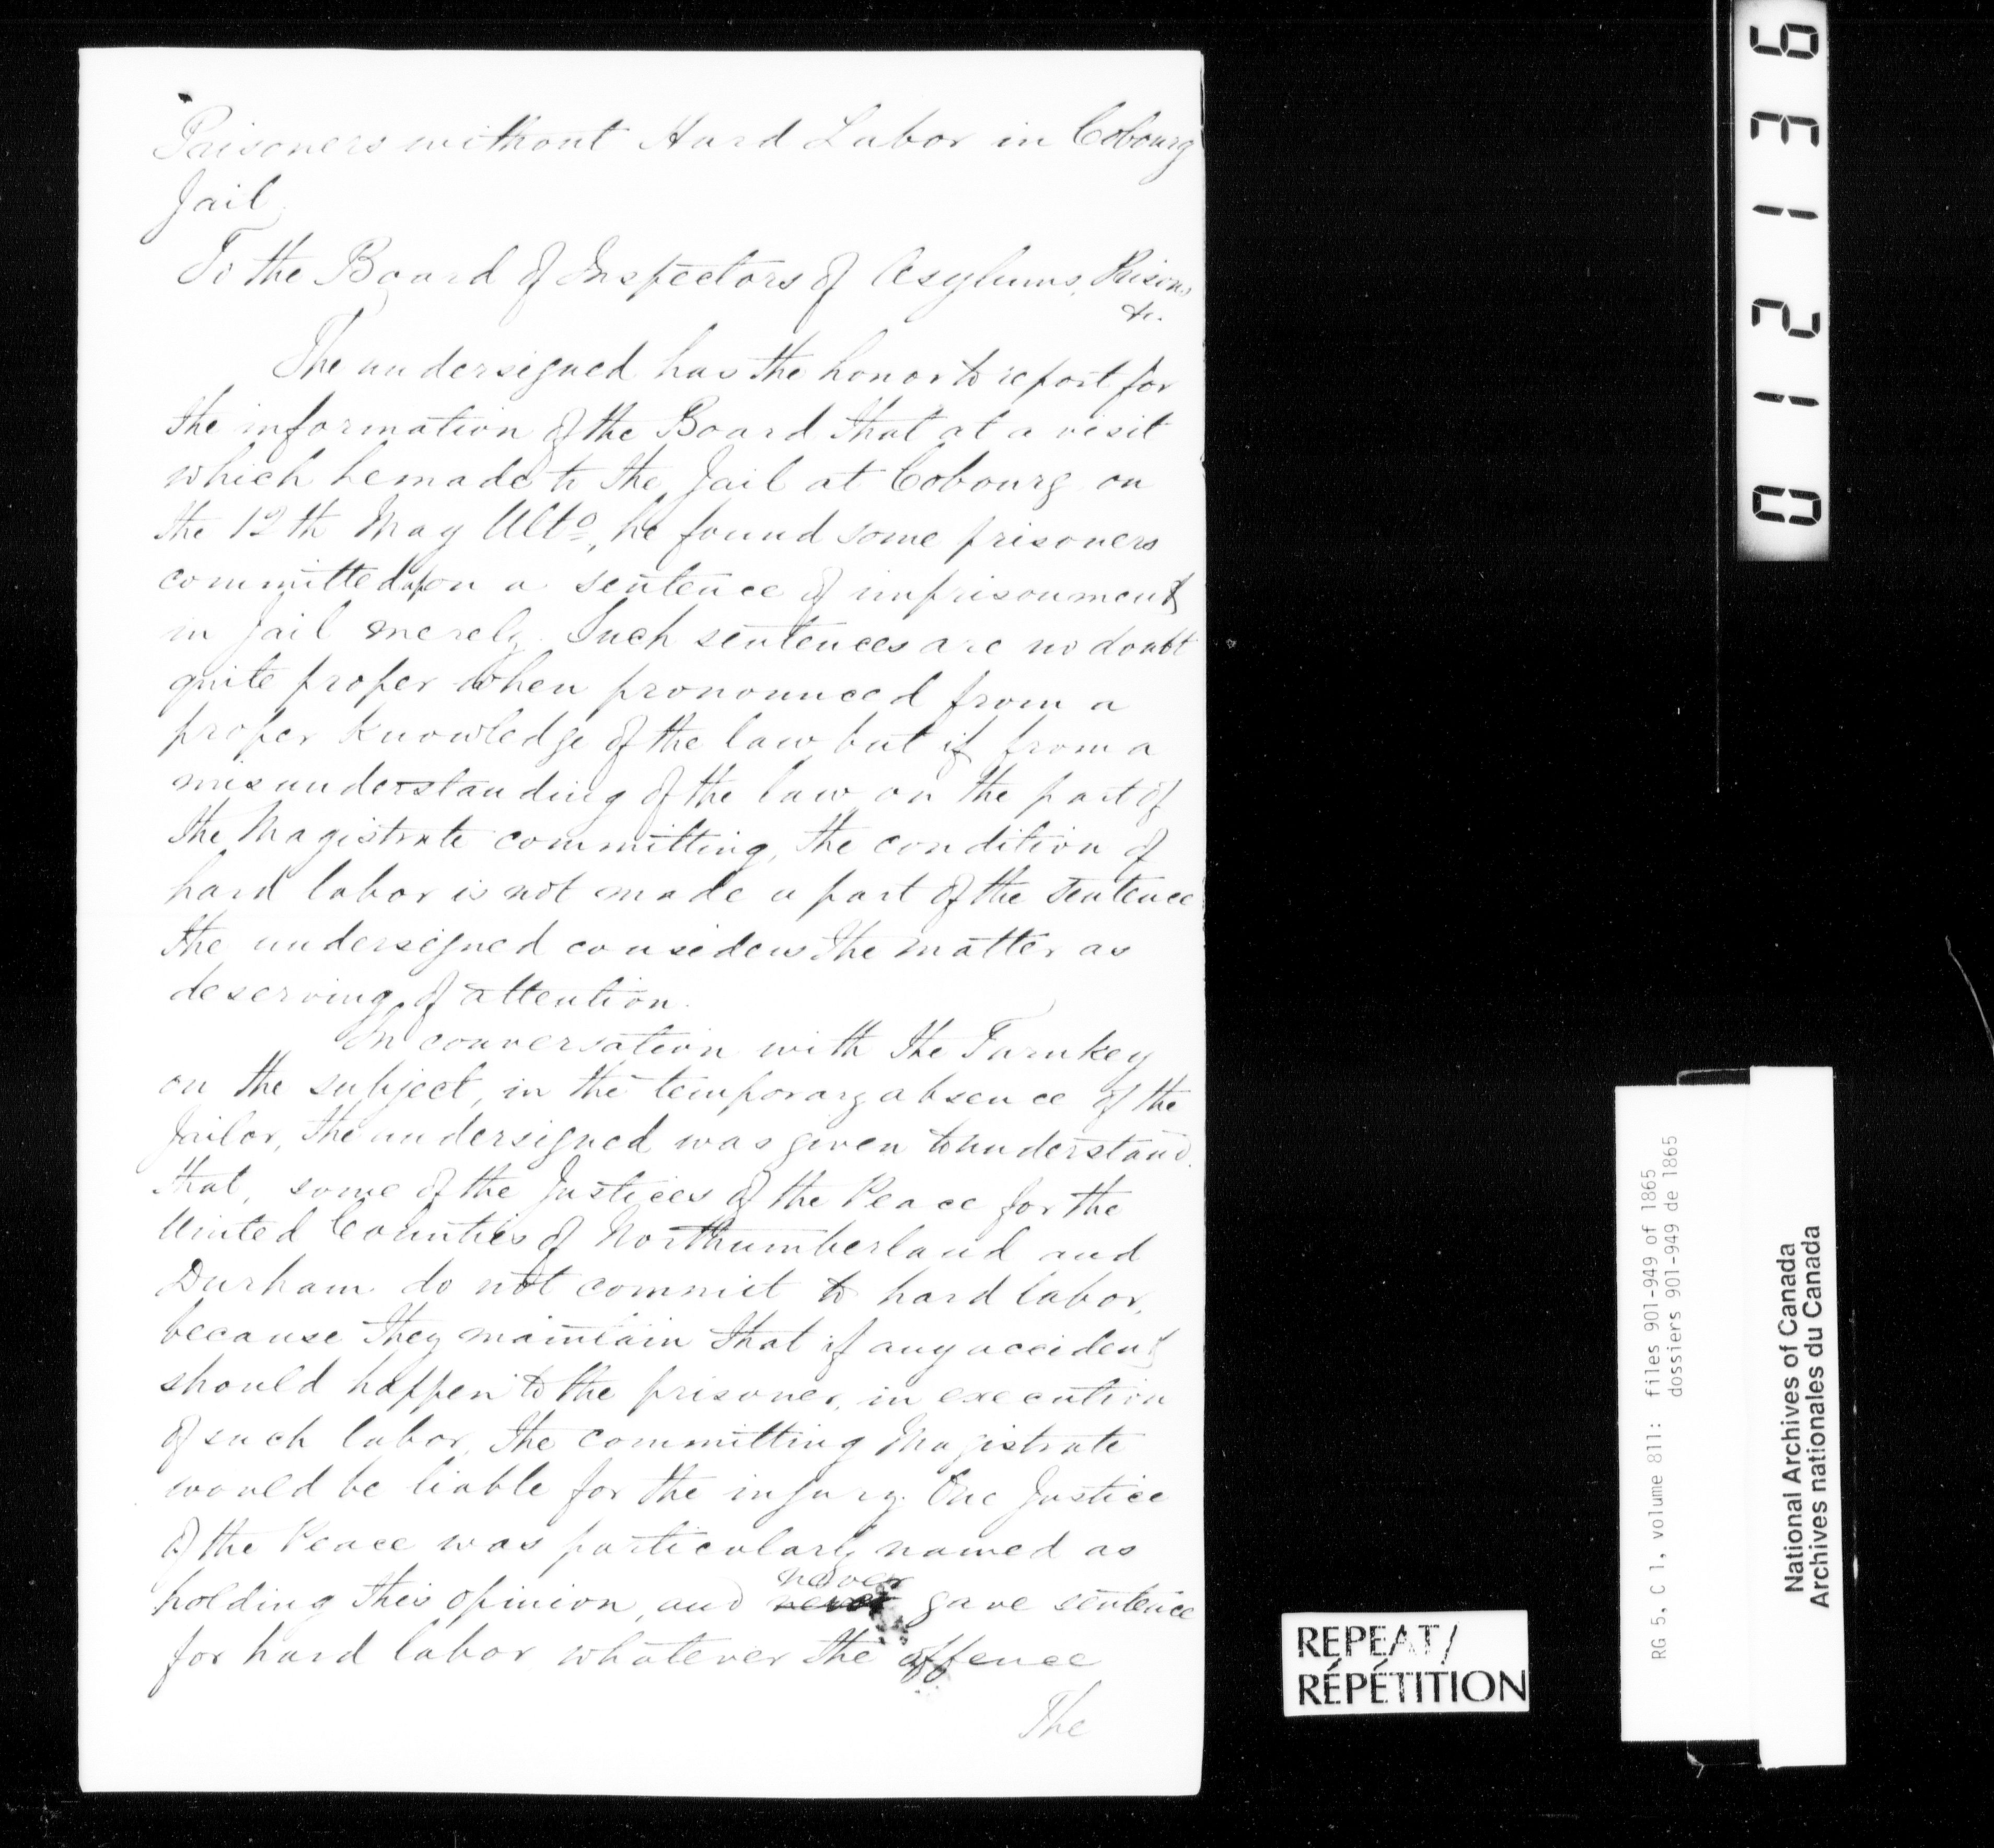 Prisoners without Hard Labor in Cobourg
Jail
To the Board of Inspectors of Asylums, Prisons
&c.
The undersigned has the honor to report for
the information of the Board that at a visit
which he made to the Jail at Cobourg on
the 12th May Ulto, he found some prisoners
committed upon a sentence of imprisonment
in Jail merely. Such sentences are no doubt
quite proper when pronounced from a
proper knowledge of the law, but if from a
misunderstanding of the law on the part of
the Magistrate committing, the condition of
hard labor is not made a part of the sentence
the undersigned considers the matter as
deserving of attention.
In conversation with the Turnkey
on the subject, in the temporary absence of the
Jailor, the undersigned was given to understand
that, some of the Justices of the Peace for the
United Counties of Northumberland and
Durham do not commit to hard labor,
because they maintain that if any accident
should happen to the prisoner, in execution
of such labor, the committing Magistrate
would be liable for the injury. One Justice
of the Peace was particularly named as
never
holding this opinion, and never gave sentence
for hard labor whatever the offence
The
012136
REPEAT/
RÉPÉTITION
RG 5, C 1, volume 811: files 901-949 of 1865
dossiers 901-949 de 1865
National Archives of Canada
Archives nationales du Canada